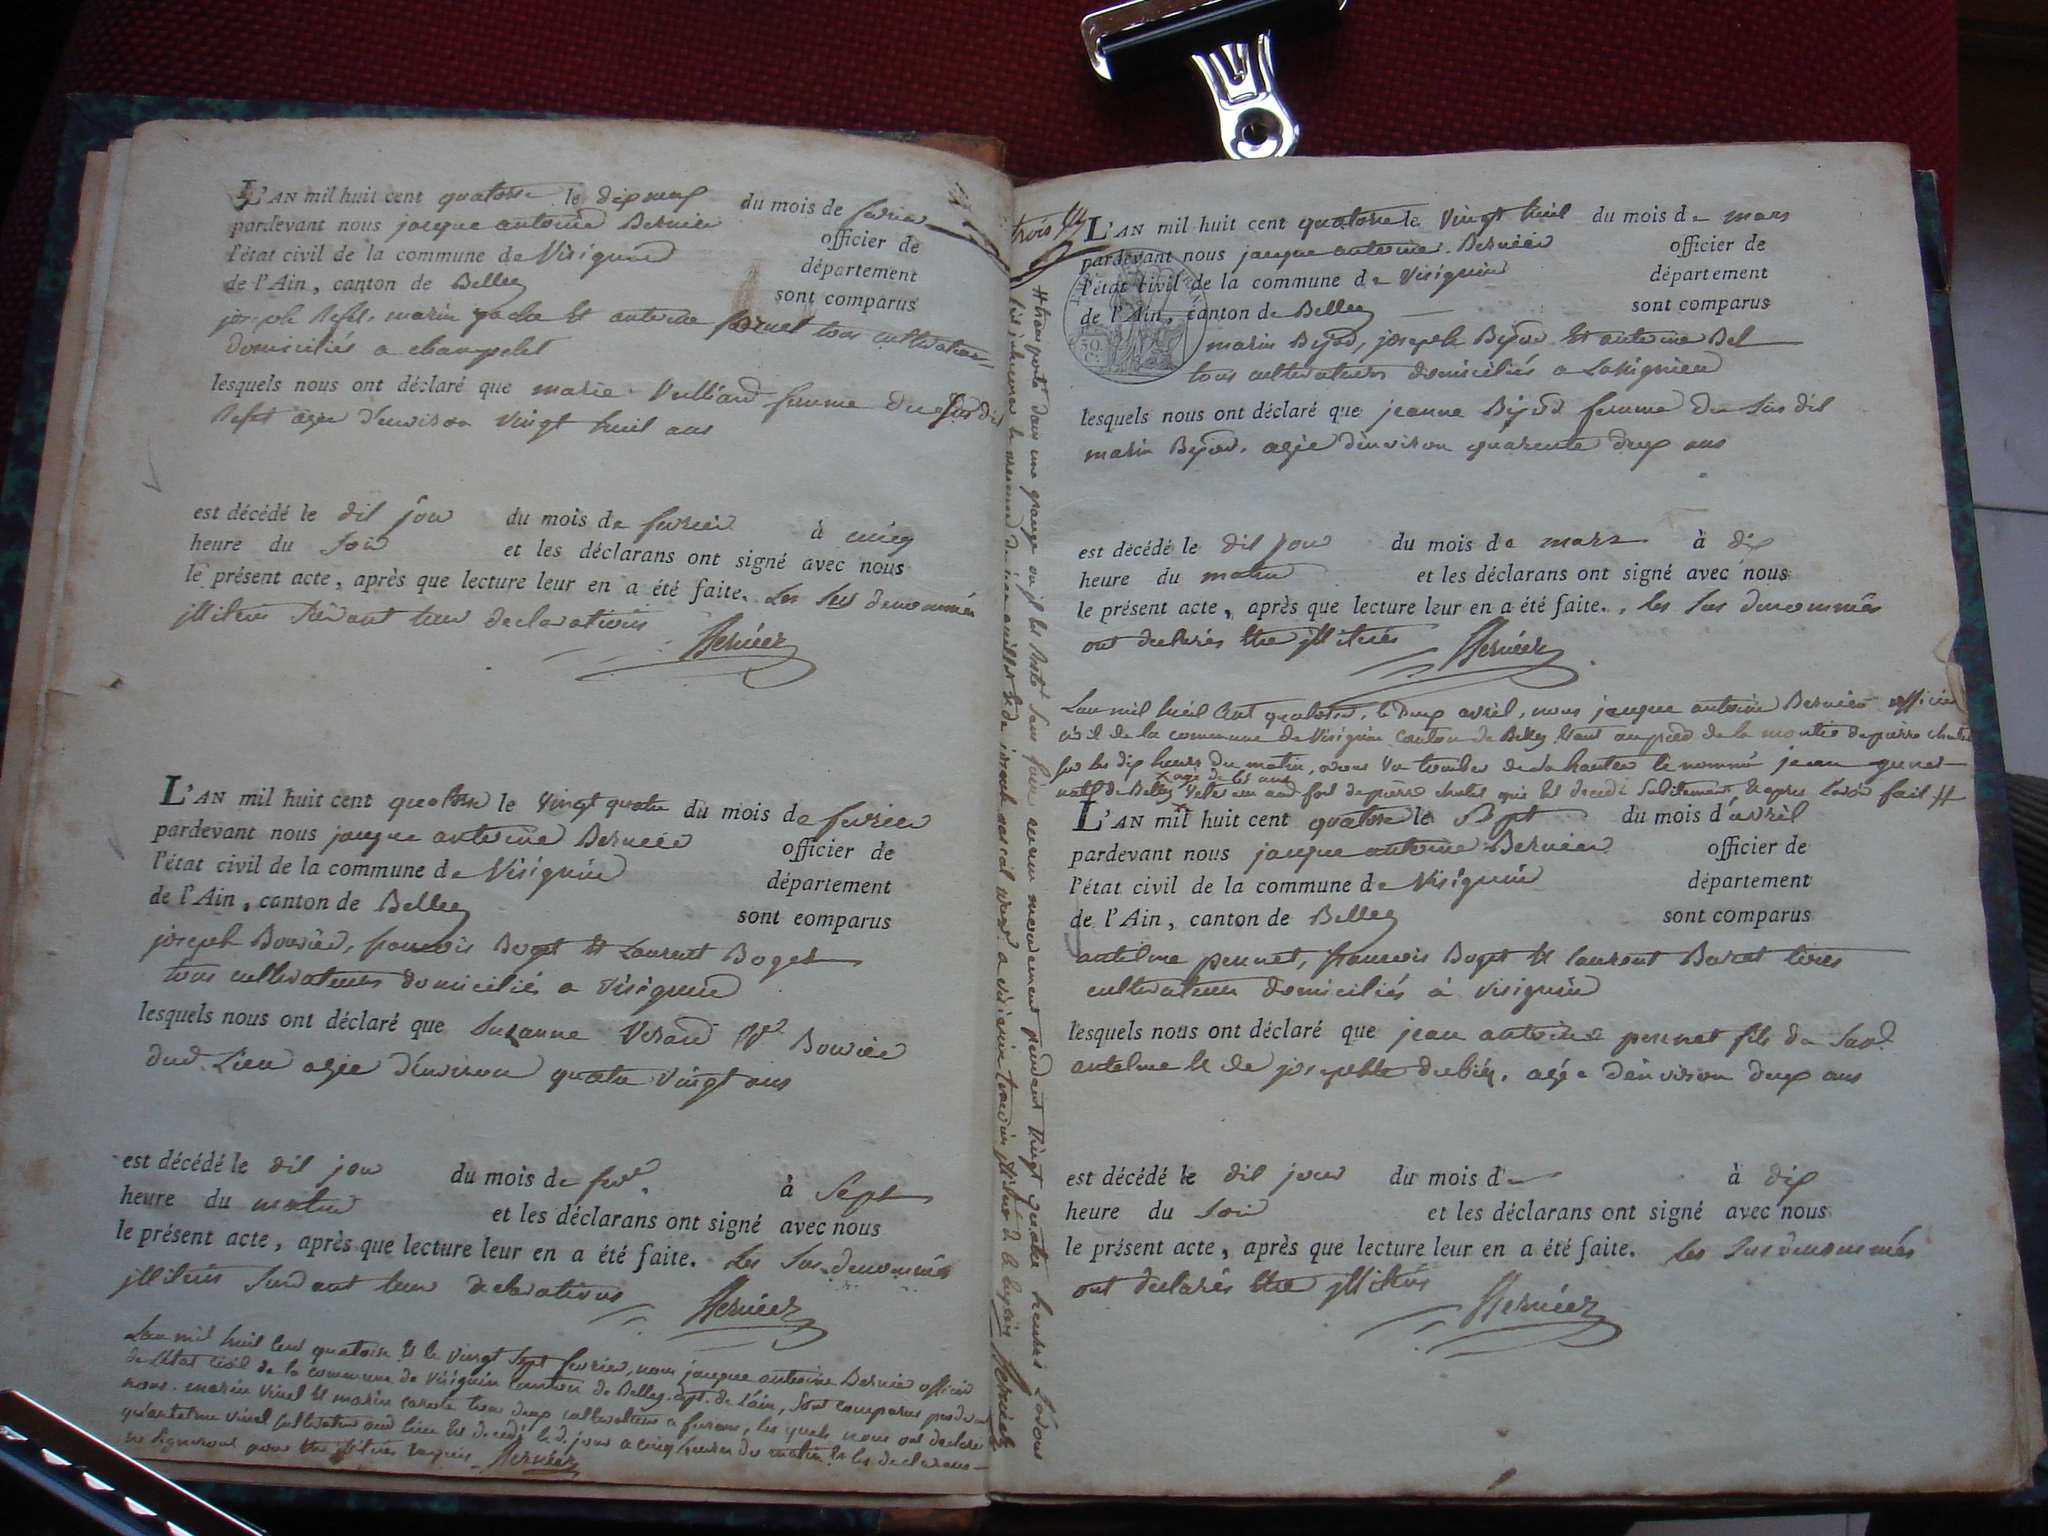 L'AN mil huit cent quatorse le dix neuf du mois de fevrier
pardevant nous jacque antoine Bernier officier de
l'état civil de la commune de Virignin département
de l'Ain, canton de Belley sont comparus
joseph Refet, marin et antoine tous cultivateurs
domiciliés a
lesquels nous ont déclaré que marie Vulliard femme du sus dit
Refet agée d'environ vingt huit ans
est décédé le dit jour du mois de fevrier à cinq
heure du soir et les déclarans ont signé avec nous
le présent acte, après que lecture leur en a été faite. Les sus denommés
illiterés suivant leur declarations Bernier
L'AN mil huit cent quatorse le vingt quatre du mois de fevrier
pardevant nous jacque antoine Bernier officier de
l'état civil de la commune de Virignin département
de l'Ain, canton de Belley sont comparus
joseph Bouvier, francois Boget et Laurent Boget
tous cultivateurs domiciliés a virignin
lesquels nous ont déclaré que Suzanne Veve Bouvier
dud. Lieu agée d'environ quatre vingt ans
est décédé le dit jour du mois de fevr. à sept
heure du matin et les déclarans ont signé avec nous
le présent acte, après que lecture leur en a été faite. Les sus denommés
illiterés suivant leur declarations Bernier
Lan mil huit cent quatorse et le vingt sept fevrier, nous jacque antoine Bernier officier
de letat civil de la commune de virignin canton de Belley dept. de Lain, sont comparus
nous marin vinet et marin tous deux cultivateurs a furans, les quels nous ont declaré
qu'antelme vinet cultivateur aud lieu est decedé le d. jour a cinq heures du matin et les declarans
ne signeront pour etre illiterés requis Bernier
# transporté dans une grange ou il est resté sans faire aucun mouvement pendant vingt quatre heures
Bernier
trois
L'AN mil huit cent quatorse le vingt huit du mois de mars
pardevant nous jacque antoine Bernier officier de
l'état civil de la commune de Virignin département
de l'Ain, canton de Belley sont comparus
marin joseph et antoine Bel
tous cultivateurs domiciliés a Lassignieu
lesquels nous ont déclaré que jeanne femme du sus dit
marin agée d'environ quarente deux ans
est décédé le dit jour du mois de mars à dix
heure du matin et les déclarans ont signé avec nous
le présent acte, après que lecture leur en a été faite. Les sus denommés
ont declarés etre illiterés Bernier
Lan mil huit cent quatorse, le deux avril, nous jacque antoine Bernier officier
civil de la commune de Virignin canton de Belley etant au pied de la montée de pierre chatel
sur les dix heures du matin, avons vu tomber de sa hauteur le nommé jean
agé de 65 ans
natif de Belley veteran aud fort de pierre chatel qui est decedé subitement, et apres l'avoir fait #
L'AN mil huit cent quatorse le sept du mois d'avril
pardevant nous jacque antoine Bernier officier de
l'état civil de la commune de Virignin département
de l'Ain, canton de Belley sont comparus
antelme pernet, francois Boget et laurent tous
cultivateurs domiciliés à virignin
lesquels nous ont déclaré que jean antoine pernet fils du susd.
antelme et de josephte dubier, agé d'environ deux ans
est décédé le dit jour du mois d à dix
heure du soir et les déclarans ont signé avec nous
le présent acte, après que lecture leur en a été faite. Les sus denommés
ont declarés etre illiterés Bernier